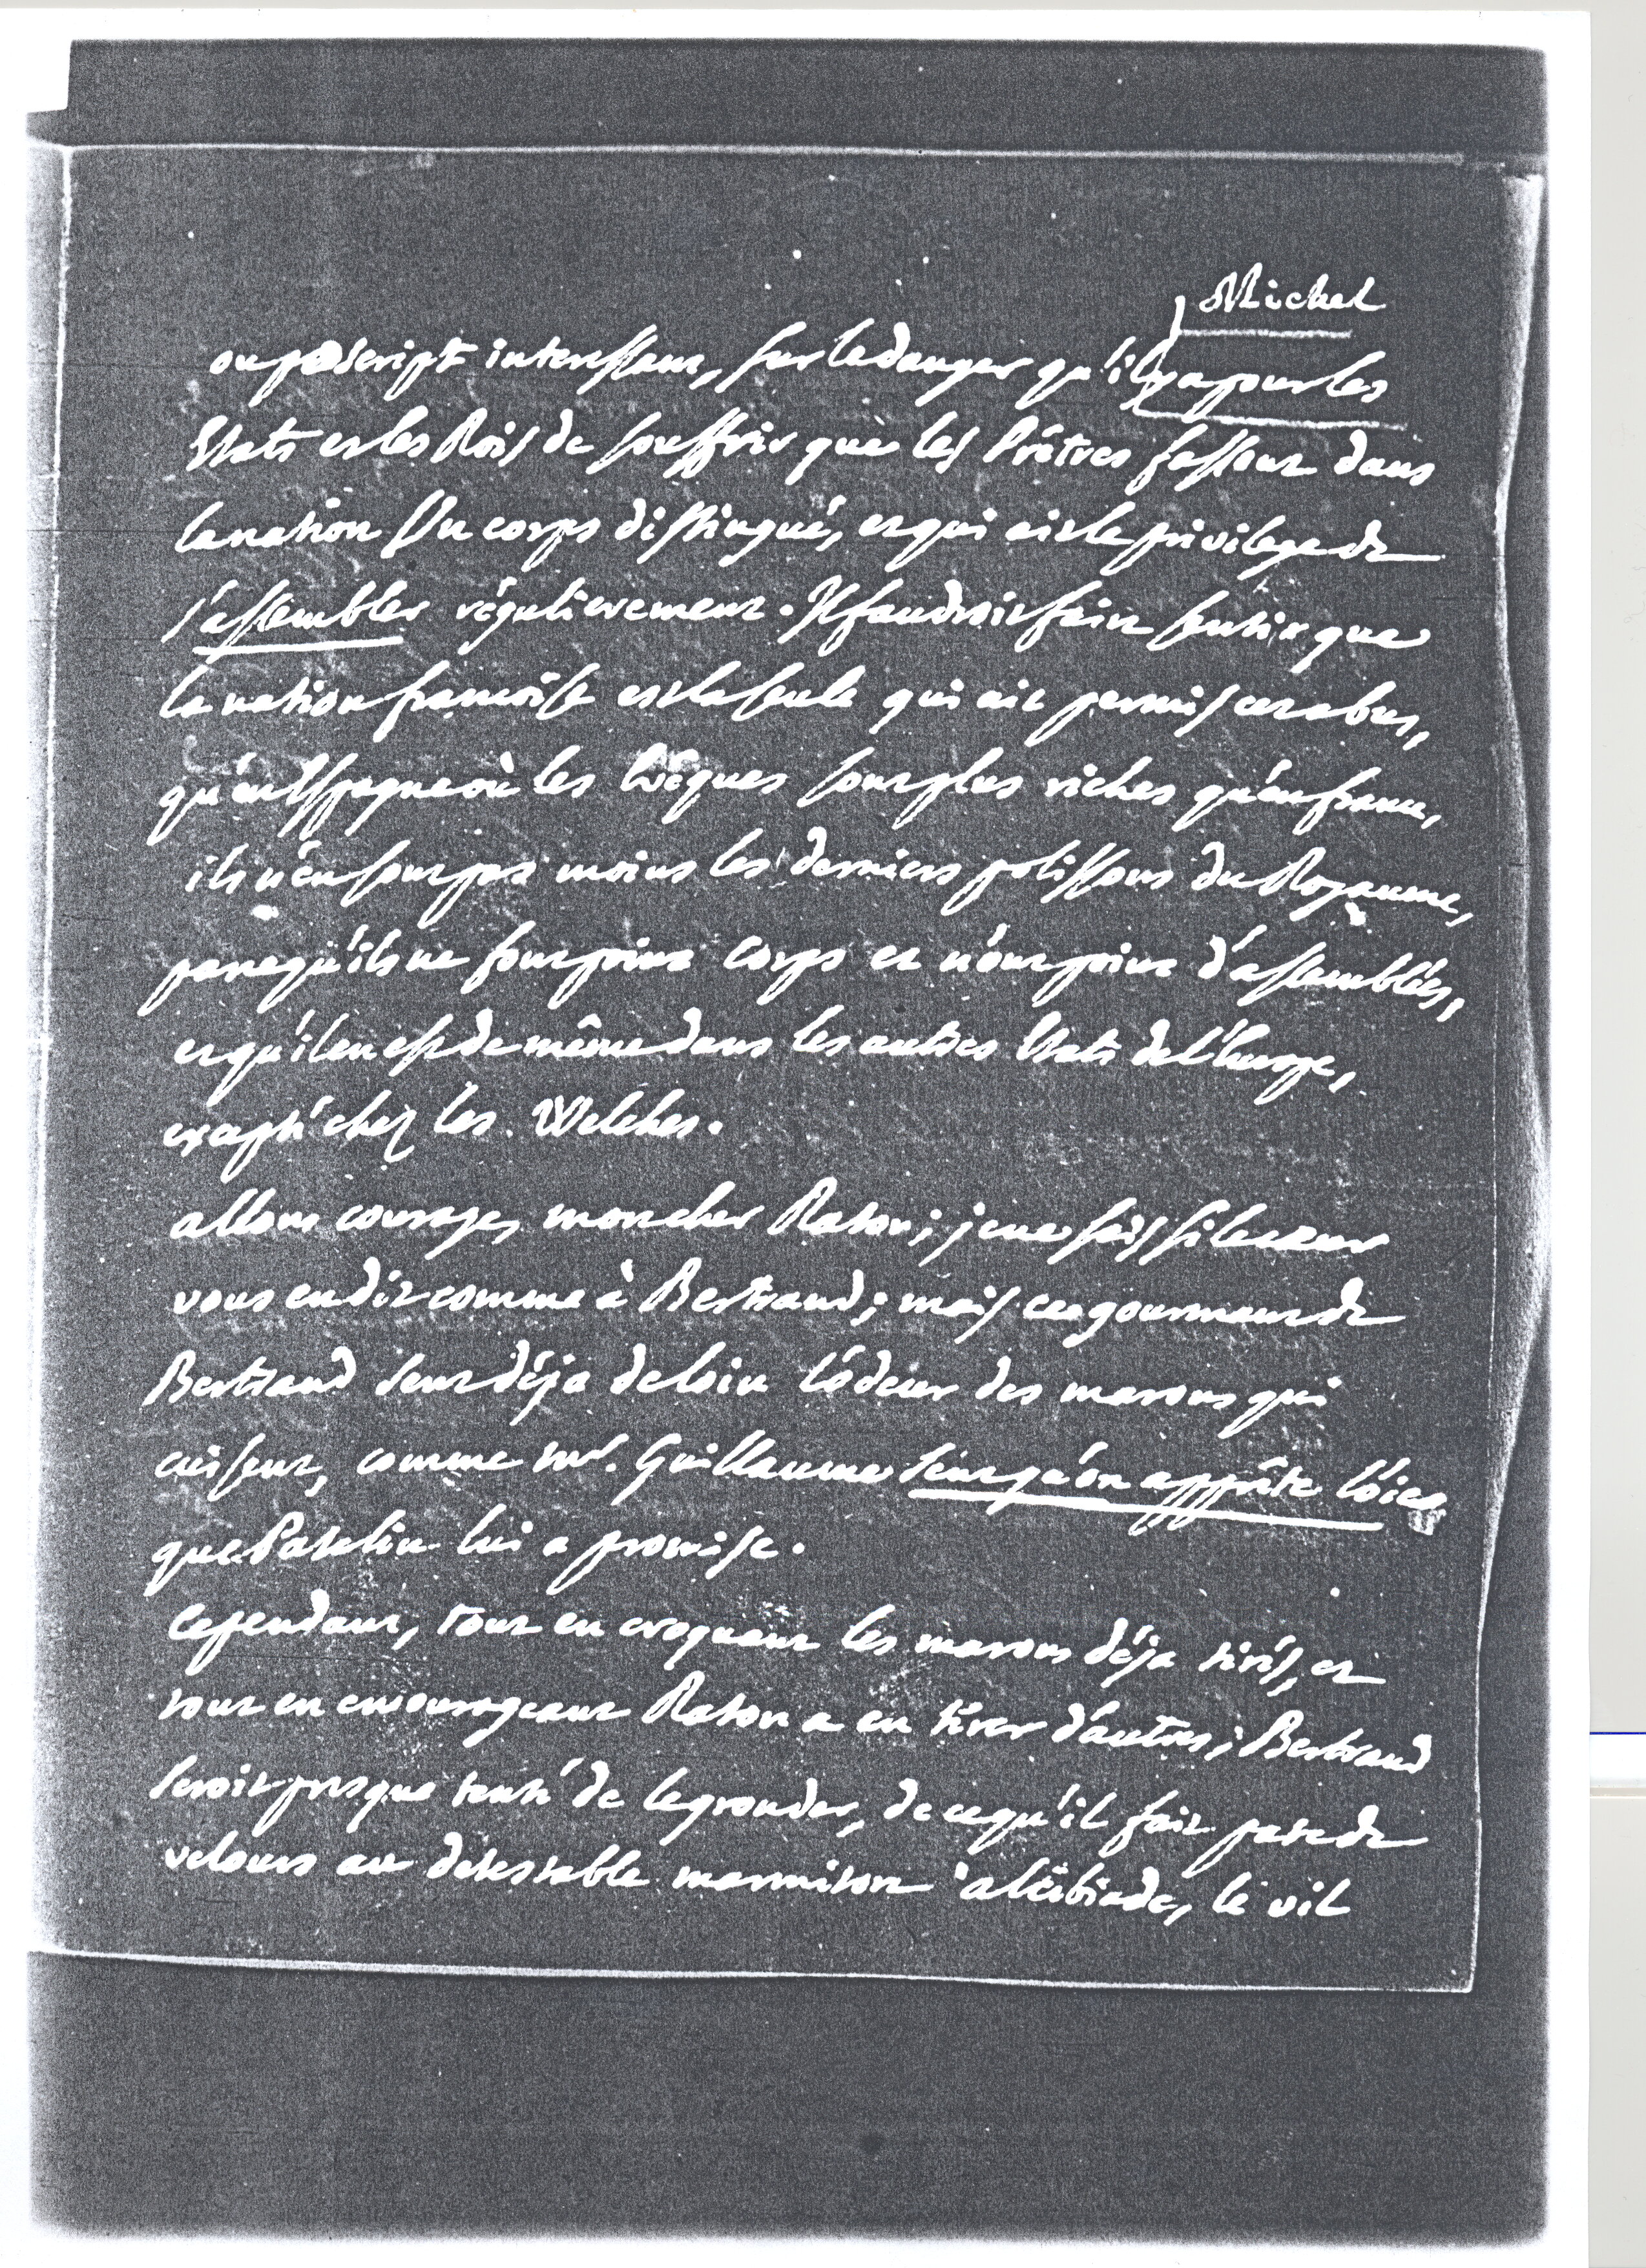 Michel
ou postscript interessant, sur le danger qu'il y a pour les
Etats et les Rois de souffrir que les Prêtres fassent dans
la nation Un corps distingué, et qui ait le privilege de
s'assembler régulierement. Il faudroit faire sentir que
la nation françoise est la seule qui ait permis cet abus,
qu'en Espagne où les Evêques sont plus riches qu'en france,
ils n'en sont pas moins les derniers polissons du Royaume,
parce qu'ils ne font point corps et n'ont point d'assemblées,
et qu'il en est de même dans les autres Etats de l'Europe,
excepté chez les Welches.
allons courage, mon cher Raton; je ne sais si le cœur
vous en dit comme à Bertrand; mais ce gourmand de
Bertrand sent déja de loin l'odeur des marons qui
cuisent, comme mr. Guillaume sent qu'on apprête l'oie
que Patelin lui a promise.
Cependant, tout en croquant les marons déja tirés, et
tout en encourageant Raton a en tirer d'autres; Bertrand
seroit presque tenté de le gronder, de ce qu'il fait pate de
velours au detestable marmiton alcibiade, le vil